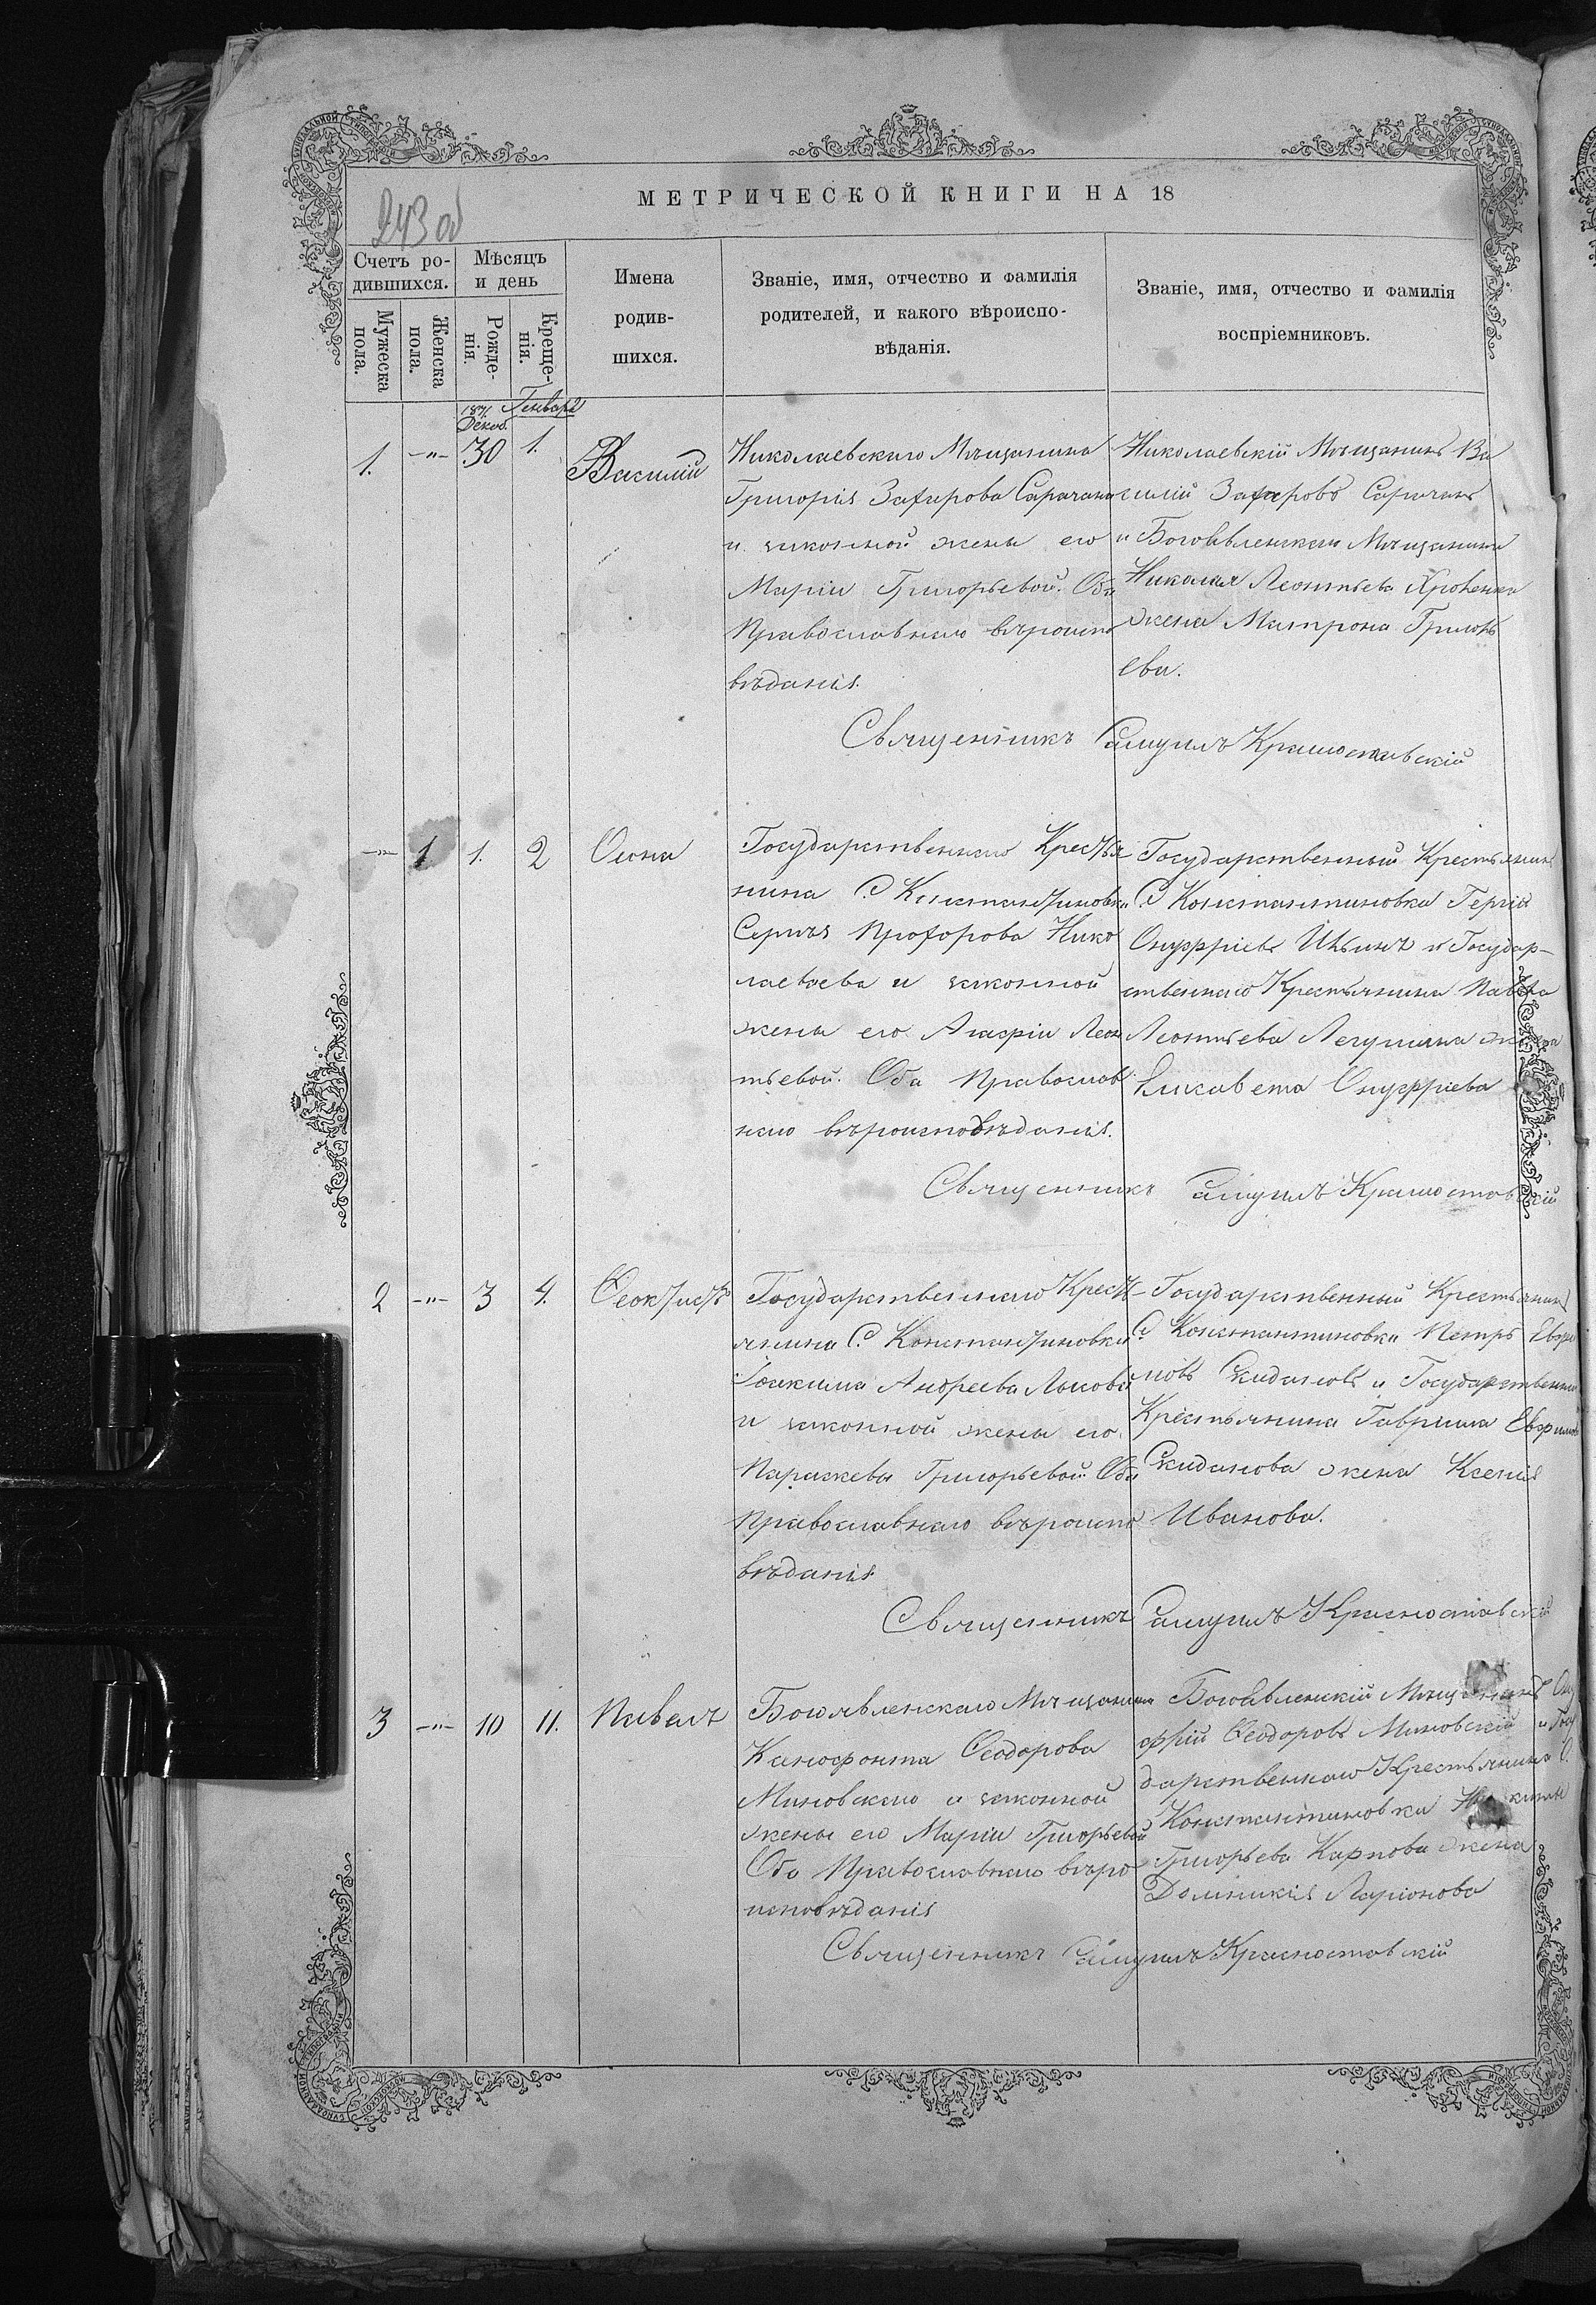 МЕТРИЧЕСКОЙ КНИГИ НА 18
243 об
Счетъ ро-
дившихся.
Мужеска
пола.
Женска
пола.
Мѣсяцъ
и день
Рожде-
нія.
Креще-
нія.
Имена
родив-
шихся.
Званіе, имя, отчество и фамилія
родителей, и какого вѣроиспо-
вѣданія.
Званіе, имя, отчество и фамилія
воспріемниковъ.
Генваря
Декаб.
1. -"- 30 1. Василій
Николаевскаго Мѣщанина
Григорія Захарова
и законной жены его
Маріи Григорьевой. Оба
Православнаго вѣроиспо
вѣданія.
Николаевскій Мѣщанинъ Ва
силій Захаровъ
и Богоявленскаго Мѣщанина
Николая Леонтьева
жена Матрона Григорь
ева.
Священникъ Самуилъ Красноставскій
-"- 1 1. 2
Государственнаго Крестья
нина С. Константиновки
Сергѣя Прохорова Нико
лаева и законной
жены его Агафіи Леон
тьевой. Оба Православ
наго вѣроисповѣданія.
Государственный Крестьянинъ
С. Константиновки
Онуфріевъ и Государ-
ственнаго Крестьянина Павла
Леонтьева жена
Елисавета Онуфріева
Священникъ Самуилъ Красноставскій
2 -"- 3 4. Ѳеоктистъ
Государственнаго Кресть
янина С. Константиновки
Іоакима Андреева
и законной жены его
Параскевы Григорьевой. Оба
Православнаго вѣроиспо
вѣданія
Государственный Крестьянинъ
С. Константиновки Петръ Евфи
мовъ Скидановъ и Государственнаго
Крестьянина Гавріила Евфимова
Скиданова жена Ксенія
Иванова.
Священникъ Самуилъ Красноставскій
3 -"- 10 11. Павелъ
Богоявленскаго Мѣщанина
Ксенофонта Ѳеодорова
Миновскаго и законной
жены его Маріи Григорьевой
Оба Православнаго вѣро
исповѣданія
Богоявленскій Мѣщанинъ Ону
фрій Ѳеодоровъ Миновскій и Госу
дарственнаго Крестьянина С.
Константиновки
Григорьева Карпова жена
Домникія Ларіонова
Священникъ Самуилъ Красноставскій